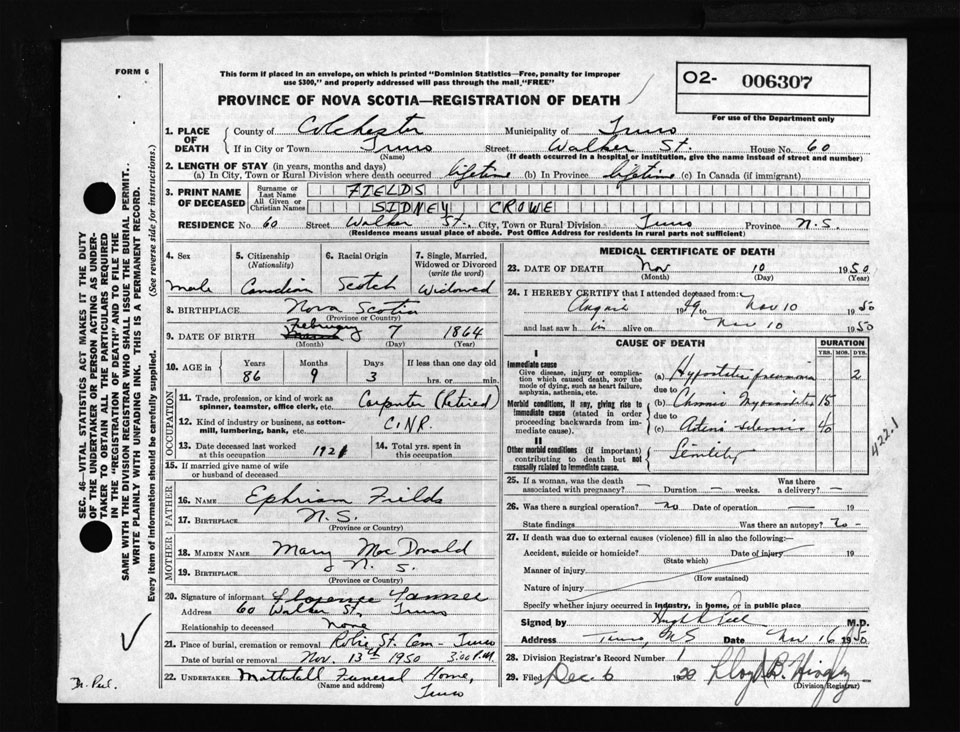 FORM 6
This form if placed in an envelope, on which is printed "Dominion Statistics—Free, penalty for improper
use $300," and properly addressed will pass through the mail "FREE"
O2- 006307
For use of the Department only
PROVINCE OF NOVA SCOTIA—REGISTRATION OF DEATH
1. PLACE OF DEATH
County of Colchester Municipality of Truro
If in City or Town Truro Street Walker St. House No. 60
(Name) (If death occurred in a hospital or institution, give the name instead of street and number)
2. LENGTH OF STAY (in years, months and days)
(a) In City, Town or Rural Division where death occurred lifetime (b) In Province lifetime (c) In Canada (if immigrant)
3. PRINT NAME OF DECEASED
Surname or Last Name FIELDS
All Given or Christian Names SIDNEY CROWE
RESIDENCE No. 60 Street Walker St. City, Town or Rural Division Truro Province N.S.
(Residence means usual place of abode. Post Office Address for residents in rural parts not sufficient)
4. Sex male
5. Citizenship (Nationality) Canadian
6. Racial Origin Scotch
7. Single, Married, Widowed or Divorced (write the word) Widowed
8. BIRTHPLACE Nova Scotia
(Province or Country)
9. DATE OF BIRTH February 7 1864
(Month) (Day) (Year)
10. AGE in Years 86 Months 9 Days 3 If less than one day old hrs. or min.
OCCUPATION
11. Trade, profession, or kind of work as spinner, teamster, office clerk, etc. Carpenter (Retired)
12. Kind of industry or business, as cotton-mill, lumbering, bank, etc. C.N.R.
13. Date deceased last worked at this occupation 1921
14. Total yrs. spent in this occupation
15. If married give name of wife or husband of deceased
FATHER
16. NAME Ephriam Fields
17. BIRTHPLACE N.S.
(Province or Country)
MOTHER
18. MAIDEN NAME Mary MacDonald
19. BIRTHPLACE N.S.
(Province or Country)
20. Signature of informant Florence
Address 60 Walker St. Truro
Relationship to deceased none
21. Place of burial, cremation or removal Robie St. Cem - Truro
Date of burial or removal Nov. 13th 1950 3.00 P.M.
22. UNDERTAKER Mattatall Funeral Home,
(Name and address) Truro
MEDICAL CERTIFICATE OF DEATH
23. DATE OF DEATH Nov 10 1950
(Month) (Day)
24. I HEREBY CERTIFY that I attended deceased from:
1949 to Nov 10 1950
and last saw him alive on Nov 10 1950
CAUSE OF DEATH
DURATION
YRS. MOS. DYS.
I
Immediate cause
Give disease, injury or complication which caused death, not the mode of dying, such as heart failure, asphyxia, asthenia, etc.
(a) Hypostatic pneumonia 2
due to
Morbid conditions, if any, giving rise to immediate cause (stated in order proceeding backwards from immediate cause).
(b) Chronic Myocarditis 15
due to
(c) 40
II
Other morbid conditions (if important) contributing to death but not causally related to immediate cause.
Senility
422.1
25. If a woman, was the death associated with pregnancy? — Duration — weeks. Was there a delivery? —
26. Was there a surgical operation? no Date of operation — 19
State findings Was there an autopsy? no -
27. If death was due to external causes (violence) fill in also the following:—
Accident, suicide or homicide? Date of injury 19
(State which)
Manner of injury
(How sustained)
Nature of injury
Specify whether injury occurred in industry, in home, or in public place
Signed by M.D.
Address Truro, N.S Date Nov 16 1950
28. Division Registrar's Record Number 1
29. Filed Dec. 6 1950 Lloyd B.
(Division Registrar)
SEC. 46—VITAL STATISTICS ACT MAKES IT THE DUTY
OF THE UNDERTAKER OR PERSON ACTING AS UNDER-
TAKER TO OBTAIN ALL THE PARTICULARS REQUIRED
IN THE "REGISTRATION OF DEATH" AND TO FILE THE
SAME WITH THE DIVISION REGISTRAR WHO SHALL ISSUE THE BURIAL PERMIT.
WRITE PLAINLY WITH UNFADING INK. THIS IS A PERMANENT RECORD.
Every item of information should be carefully supplied. (See reverse side for instructions.)